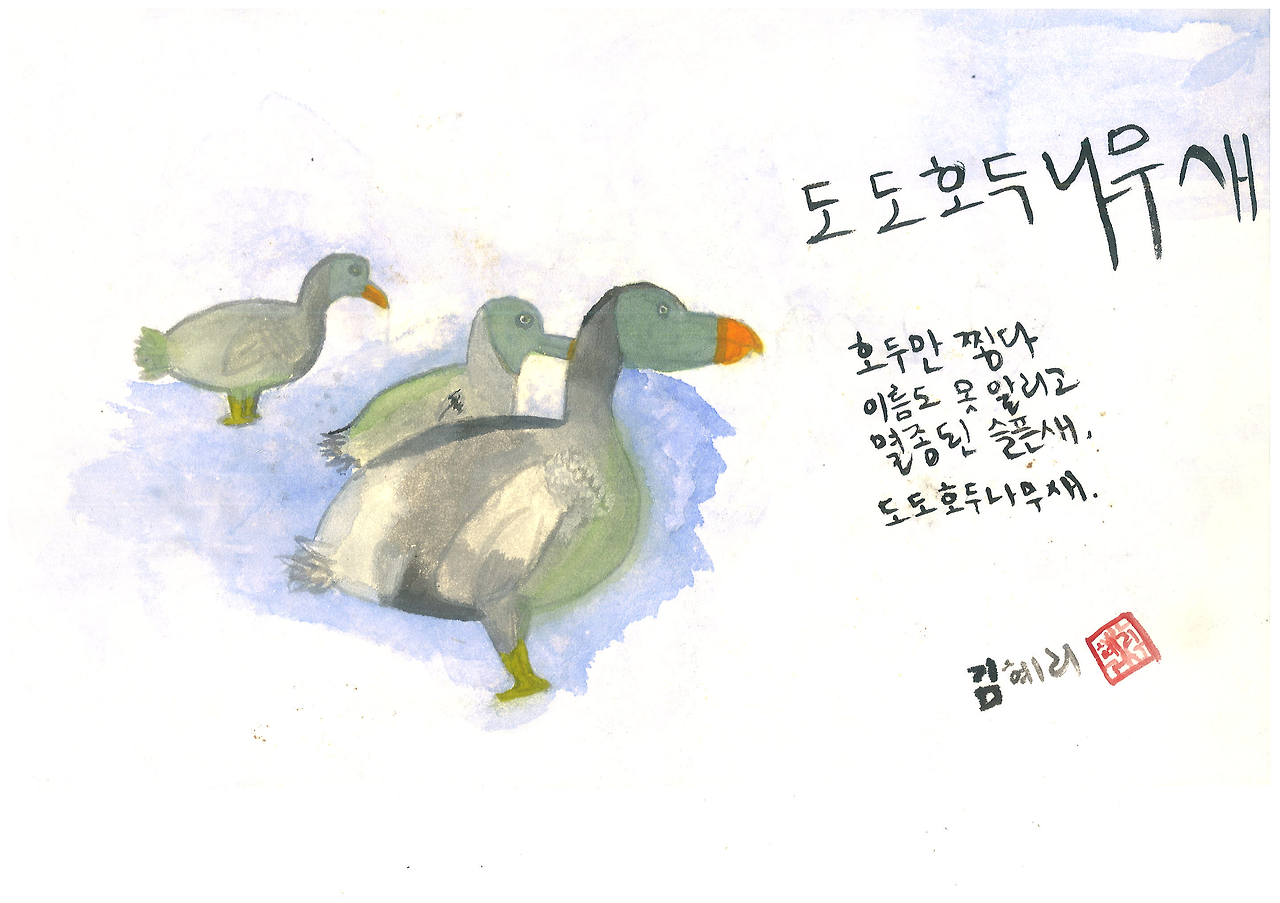 도도호두나무새
호두만 찡다
이름도 못 알리고
멸종된 슬픈새.
도도호두나무새.
김혜리
혜리